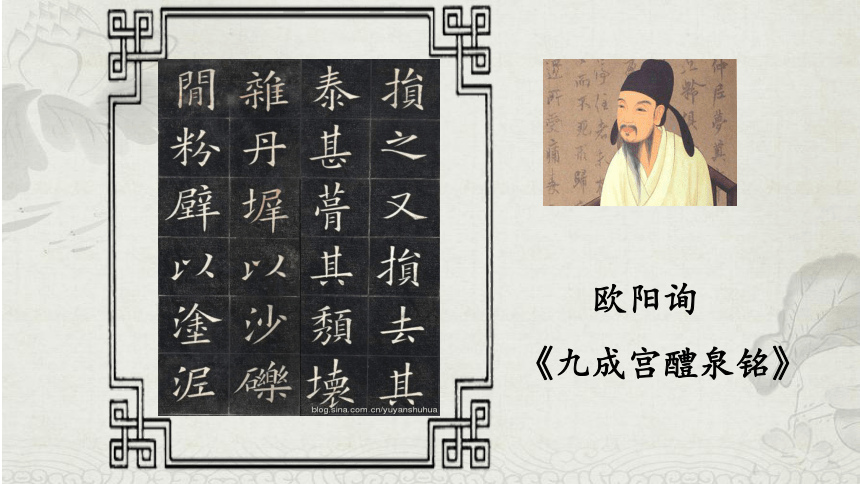 損之又損去其
泰甚葺其頽壞
雜丹墀以沙礫
閒粉壁以塗泥
blog.sina.com.cn/yuyanshuhua
仲尼夢奠
欧阳询
《九成宫醴泉铭》